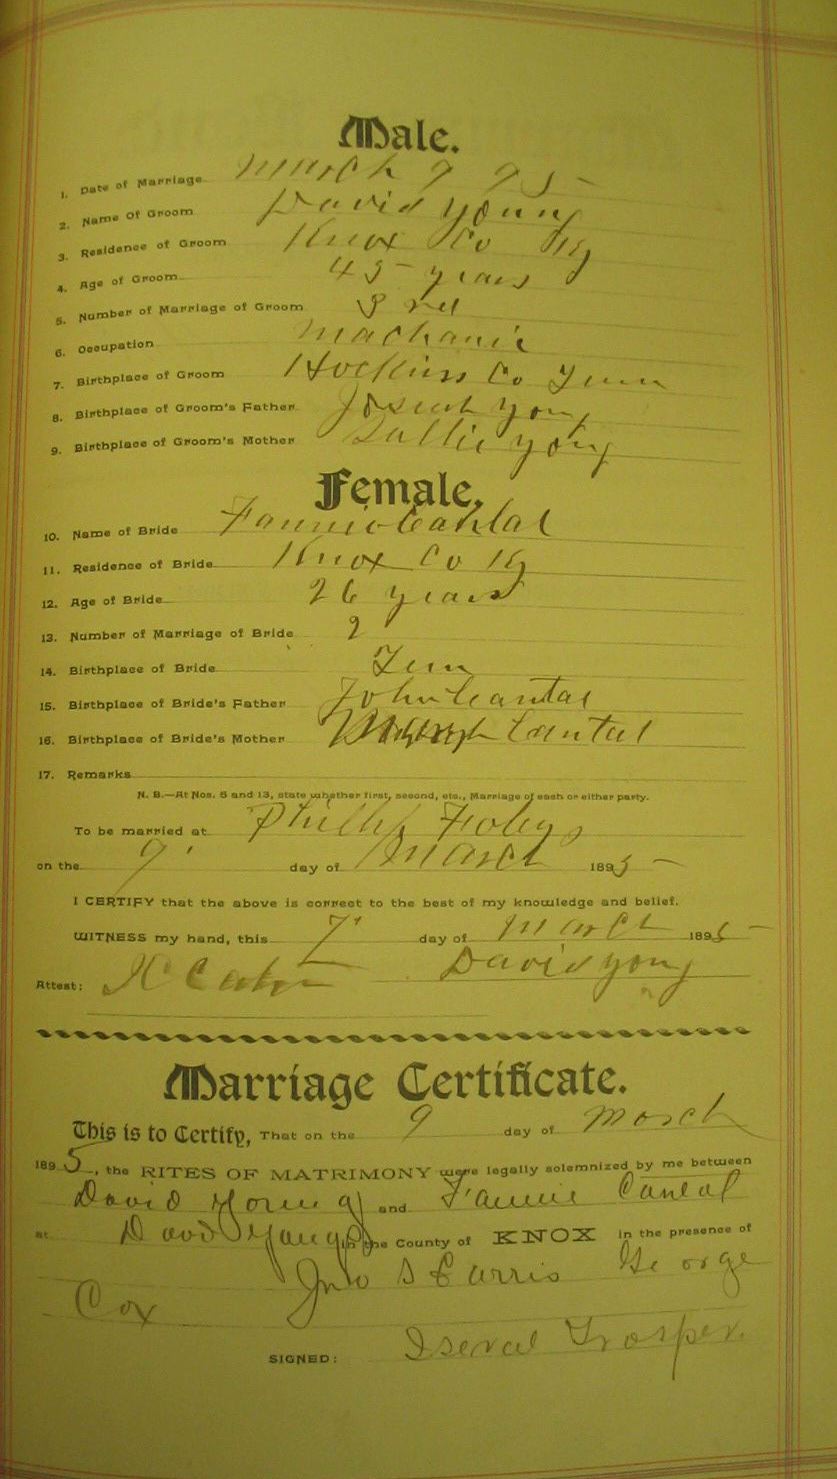 Male.
1. Date of Marriage March 9 95-
2. Name Of Groom David Young
3. Residence of Groom Knox Co Ky
4. Age of Groom 45- years
5. Number of Marriage of Groom 3rd
6. Occupation Machanic
7. Birthplace of Groom Hockins Co Tenn
8. Birthplace of Groom's Father Josiah Yong
9. Birthplace of Groom's Mother Sallie Yong
Female.
10. Name of Bride Fannie Cantal
11. Residence of Bride Knox Co Ky
12. Age of Bride 26 years
13. Number of Marriage of Bride 2
14. Birthplace of Bride Tenn
15. Birthplace of Bride's Father John Cantal
16. Birthplace of Bride's Mother Cantal
17. Remarks
N. B.—At Nos. 5 and 13, state whether first, second, etc., Marriage of each or either party.
To be married at
on the 9' day of March 1895-
I CERTIFY that the above is correct to the best of my knowledge and belief.
WITNESS my hand, this 7" day of March 1895-
Attest: David Yong
Marriage Certificate.
This is to Certify, That on the 9 day of March
1895, the RITES OF MATRIMONY were legally solemnized by me between
David Young and Fannie Cantal
at David Youngs in the County of KNOX in the presence of
Jno S Farris George
Cox
SIGNED: Iseral Trosper.